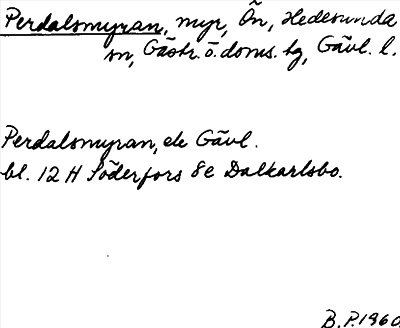 Perdalsmyran, myr, Ön, Hedesunda
sn, Gästr. ö. doms. hg, Gävl. l.
Perdalsmyran, ek Gävl.
bl. 12 H Söderfors 8e Dalkarlsbo.
B.P. 1960